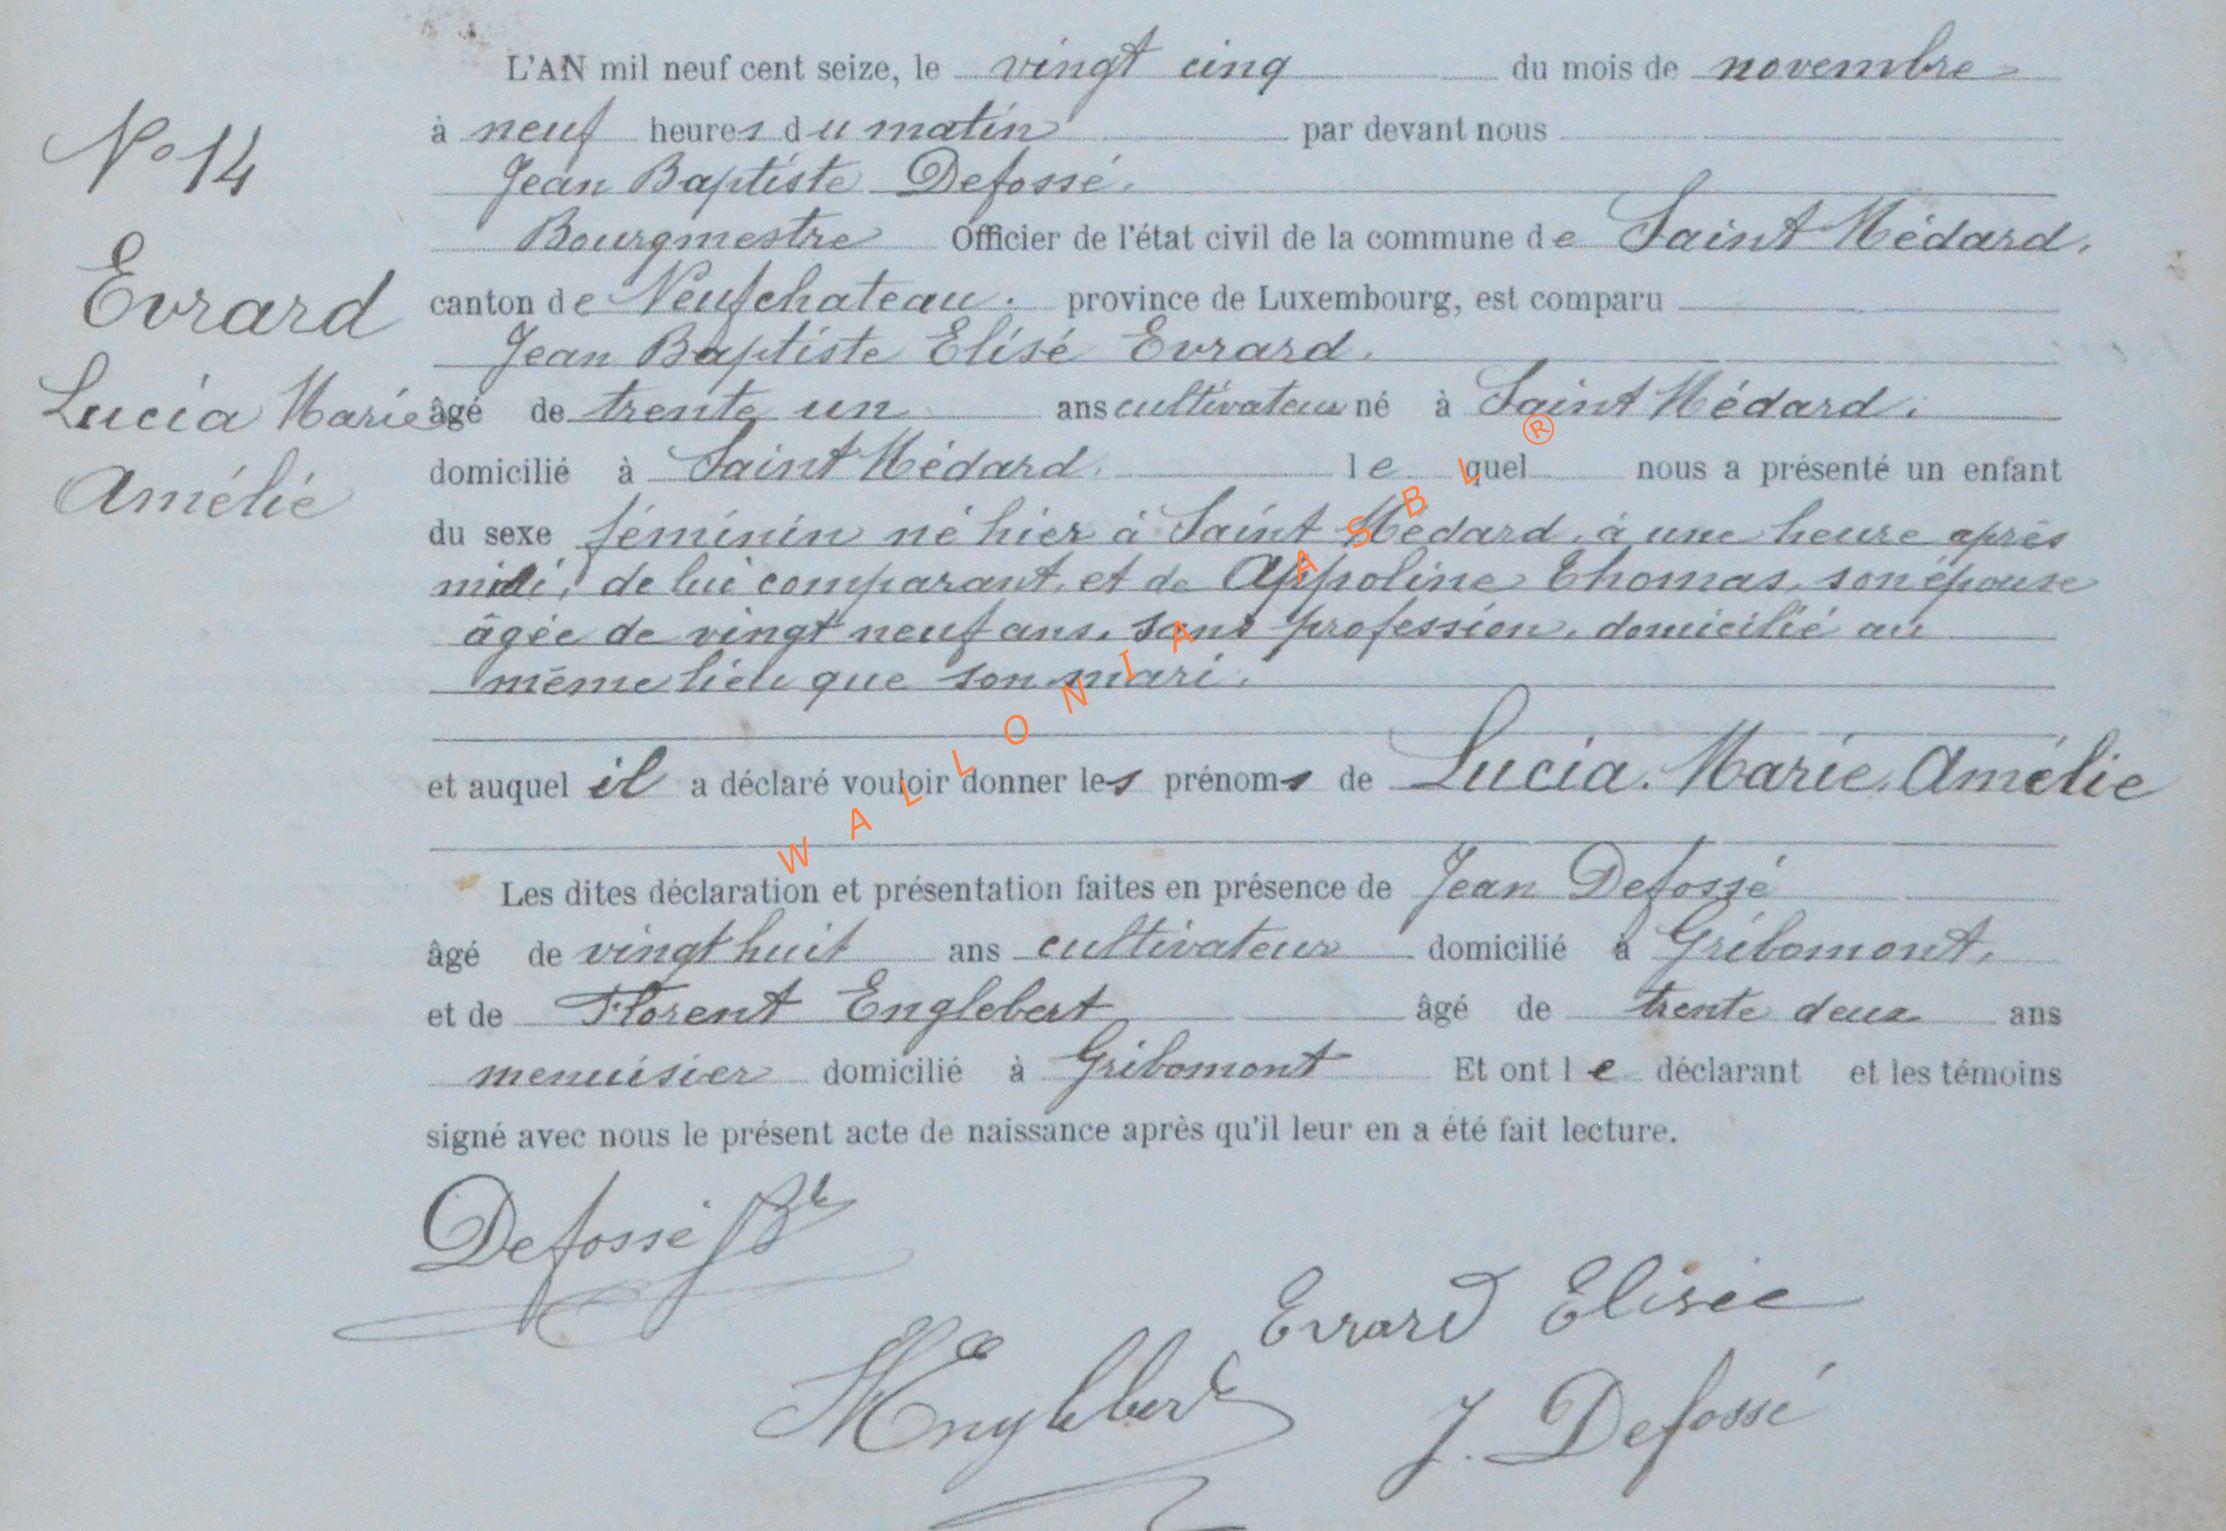 L'AN mil neuf cent seize, le vingt cinq du mois de novembre
à neuf heures du matin par devant nous
Jean Baptiste Defossé.
Bourgmestre Officier de l'état civil de la commune de Saint Médard.
canton de Neufchateau. province de Luxembourg, est comparu
Jean Baptiste Elisé Evrard.
âgé de trente un ans cultivateur né à Saint Médard.
domicilié à Saint Médard. le quel nous a présenté un enfant
du sexe féminin né hier à Saint Médard, à une heure après
midi, de lui comparant, et de Appoline Thomas, son épouse
âgée de vingt neuf ans, sans profession, domicilié au
même lieu que son mari.
et auquel il a déclaré vouloir donner les prénoms de Lucia. Marie. Amélie
Les dites déclaration et présentation faites en présence de Jean Defossé
âgé de vingt huit ans cultivateur domicilié à Gribomont.
et de Florent Englebert âgé de trente deux ans
menuisier domicilié à Gribomont Et ont le déclarant et les témoins
signé avec nous le présent acte de naissance après qu'il leur en a été fait lecture.
No 14
Evrard
Lucia Marie
Amélie
Defossé
Evrard Elisée
Englebert
J. Defossé
WALLONIA ASBL ®